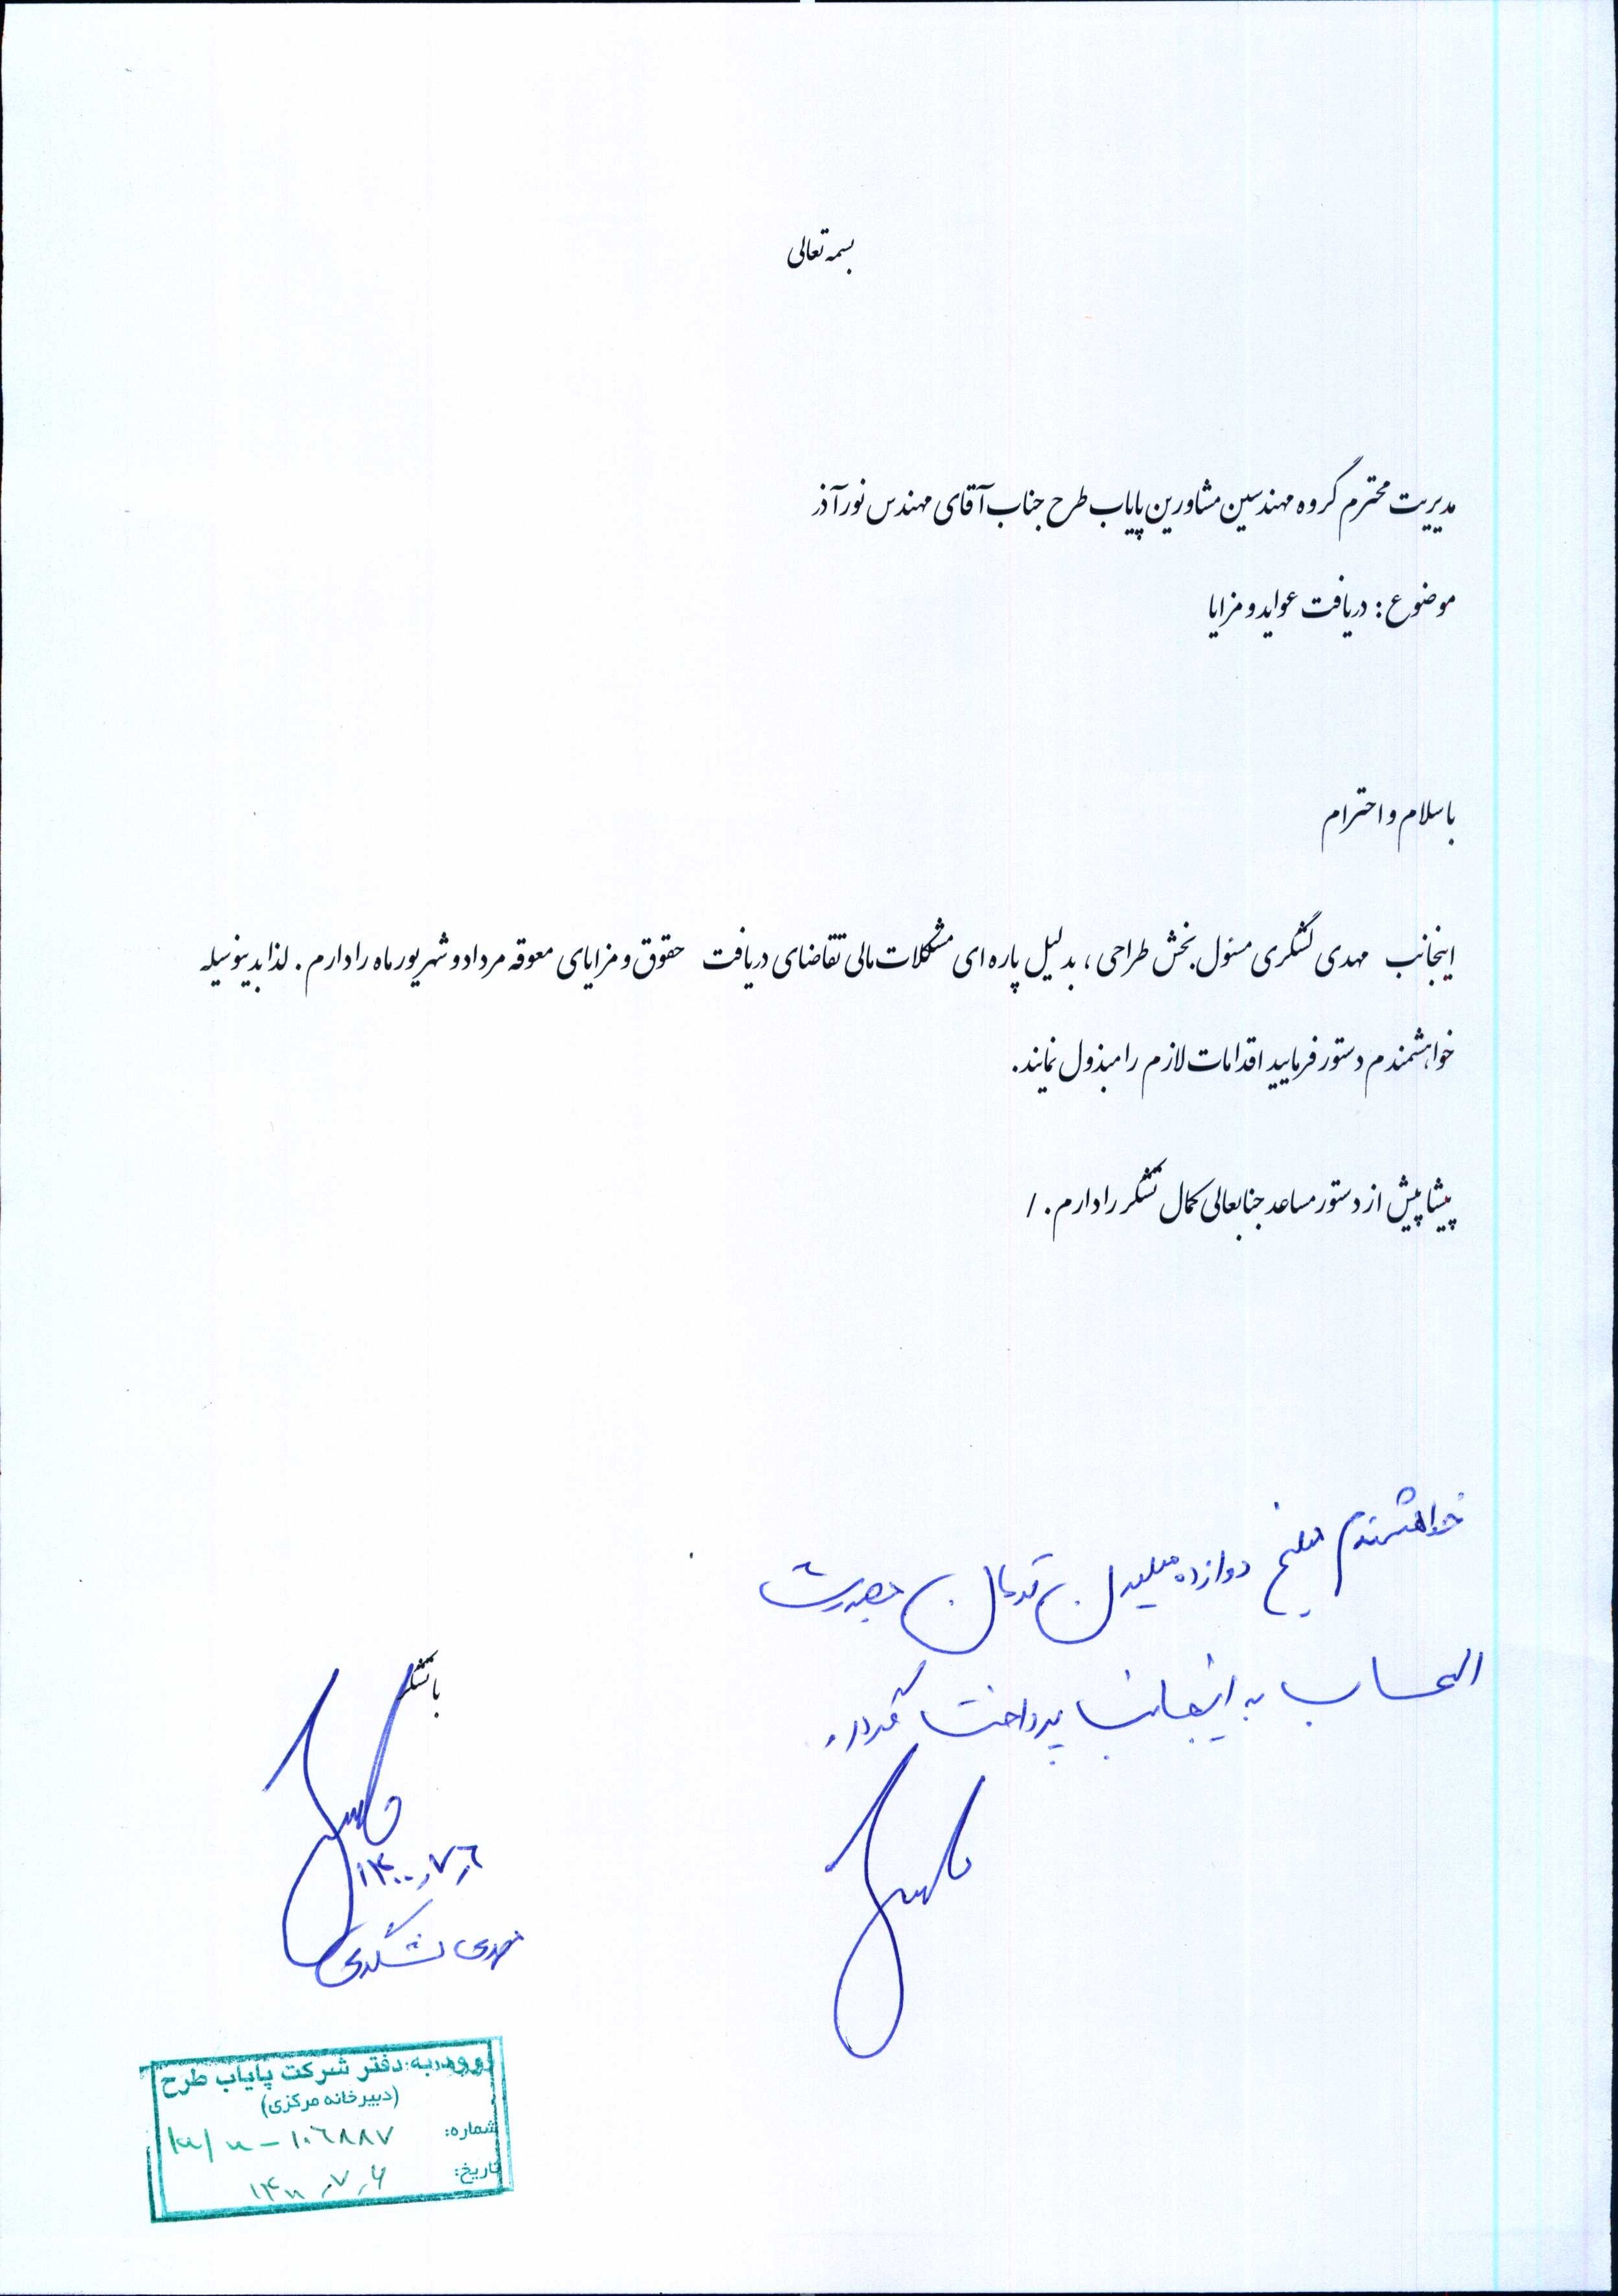 بسمه تعالی
مدیریت محترم گروه مهندسین مشاورین پایاب طرح جناب آقای مهندس نورآذر
موضوع: دریافت عواید و مزایا
با سلام و احترام
اینجانب مهدی لشگری مسئول بخش طراحی، بدلیل پاره ای مشکلات مالی تقاضای دریافت حقوق و مزایای معوقه مرداد و شهریور ماه را دارم. لذا بدینوسیله
خواهشمندم دستور فرمایید اقدامات لازم را مبذول نمایند.
پیشاپیش از دستور مساعد جنابعالی کمال تشکر را دارم. /
خواهشمندم مبلغ دوازده میلیون تومان بصورت
الحساب به اینجانب پرداخت گردد.
با تشکر
۱۴۰۰٫۷٫۶
مهدی لشگری
ورود به دفتر شرکت پایاب طرح
(دبیرخانه مرکزی)
شماره: ۱۰۶۸۸۷
تاریخ: ۱۴۰۰٫۷٫۶